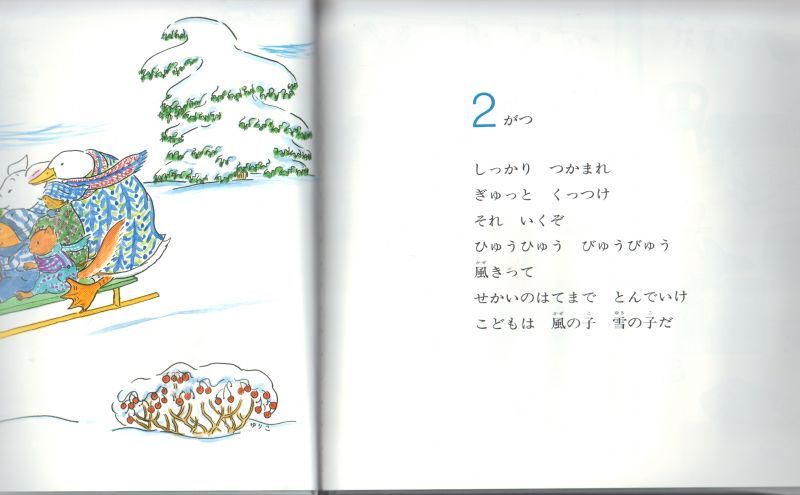 2 がつ
しっかり　つかまれ
ぎゅっと　くっつけ
それ　いくぞ
ひゅうひゅう　びゅうびゅう
風きって
せかいのはてまで　とんでいけ
こどもは　風の子　雪の子だ
ゆりこ